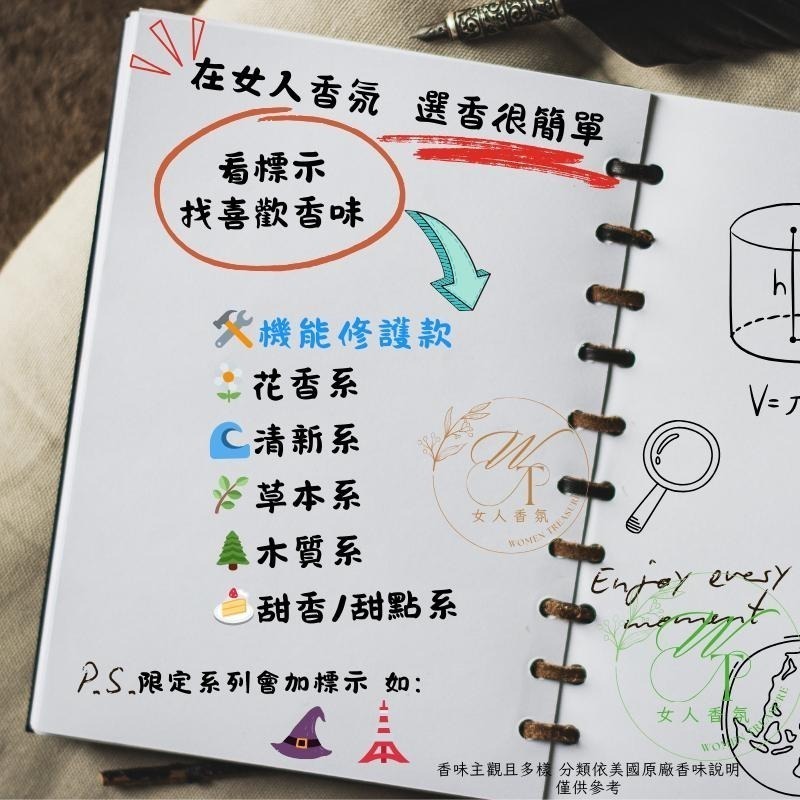 在女人香氛 選香很簡單
看標示
找喜歡香味
機能修護款
花香系
清新系
草本系
木質系
甜香/甜點系
P.S.限定系列會加標示 如:
女人香氛
WOMEN TREASURE
h
V=
Enjoy every
moment
女人香氛
WOMEN TREASURE
香味主觀且多樣 分類依美國原廠香味說明
僅供參考